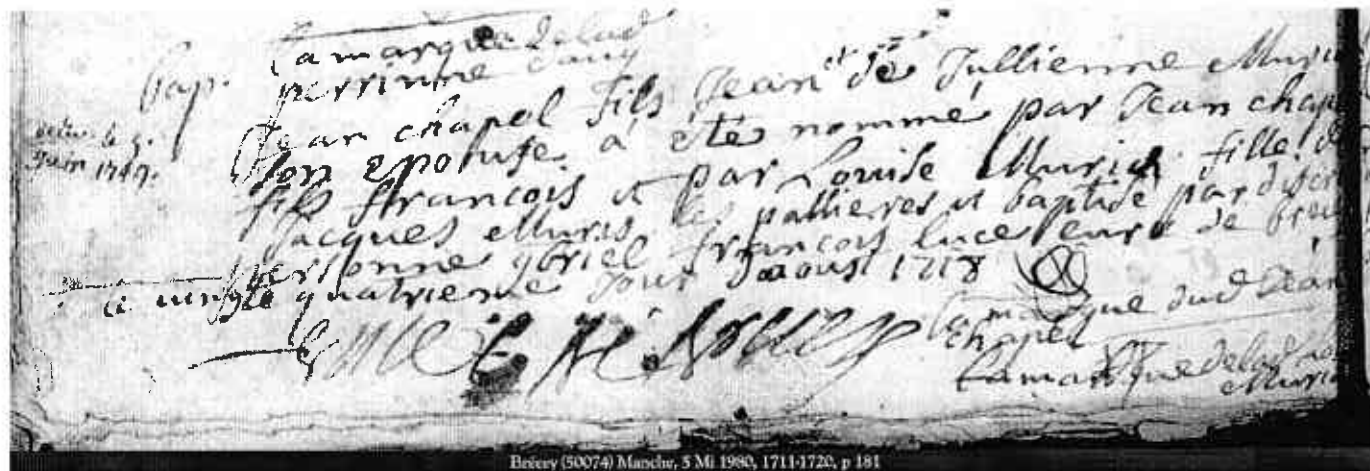 la marque de lad
perrinne
bap.
Jean chapel fils Jean et de Jullienne Muris
son epouse a ète nommé par Jean chapel
fils francois et par Louise Muris fille de
Jacques Muris les pallieres et baptisé par discre
personne gbriel francois luce curé de
ce vingt quatrieme Jour daoust 1718
le 9.
Juin 1719.
la marque dud Jean
chapel
la marque de lad
Muris
Brécey (50074) Manche, 5 Mi 1980, 1711-1720, p 181